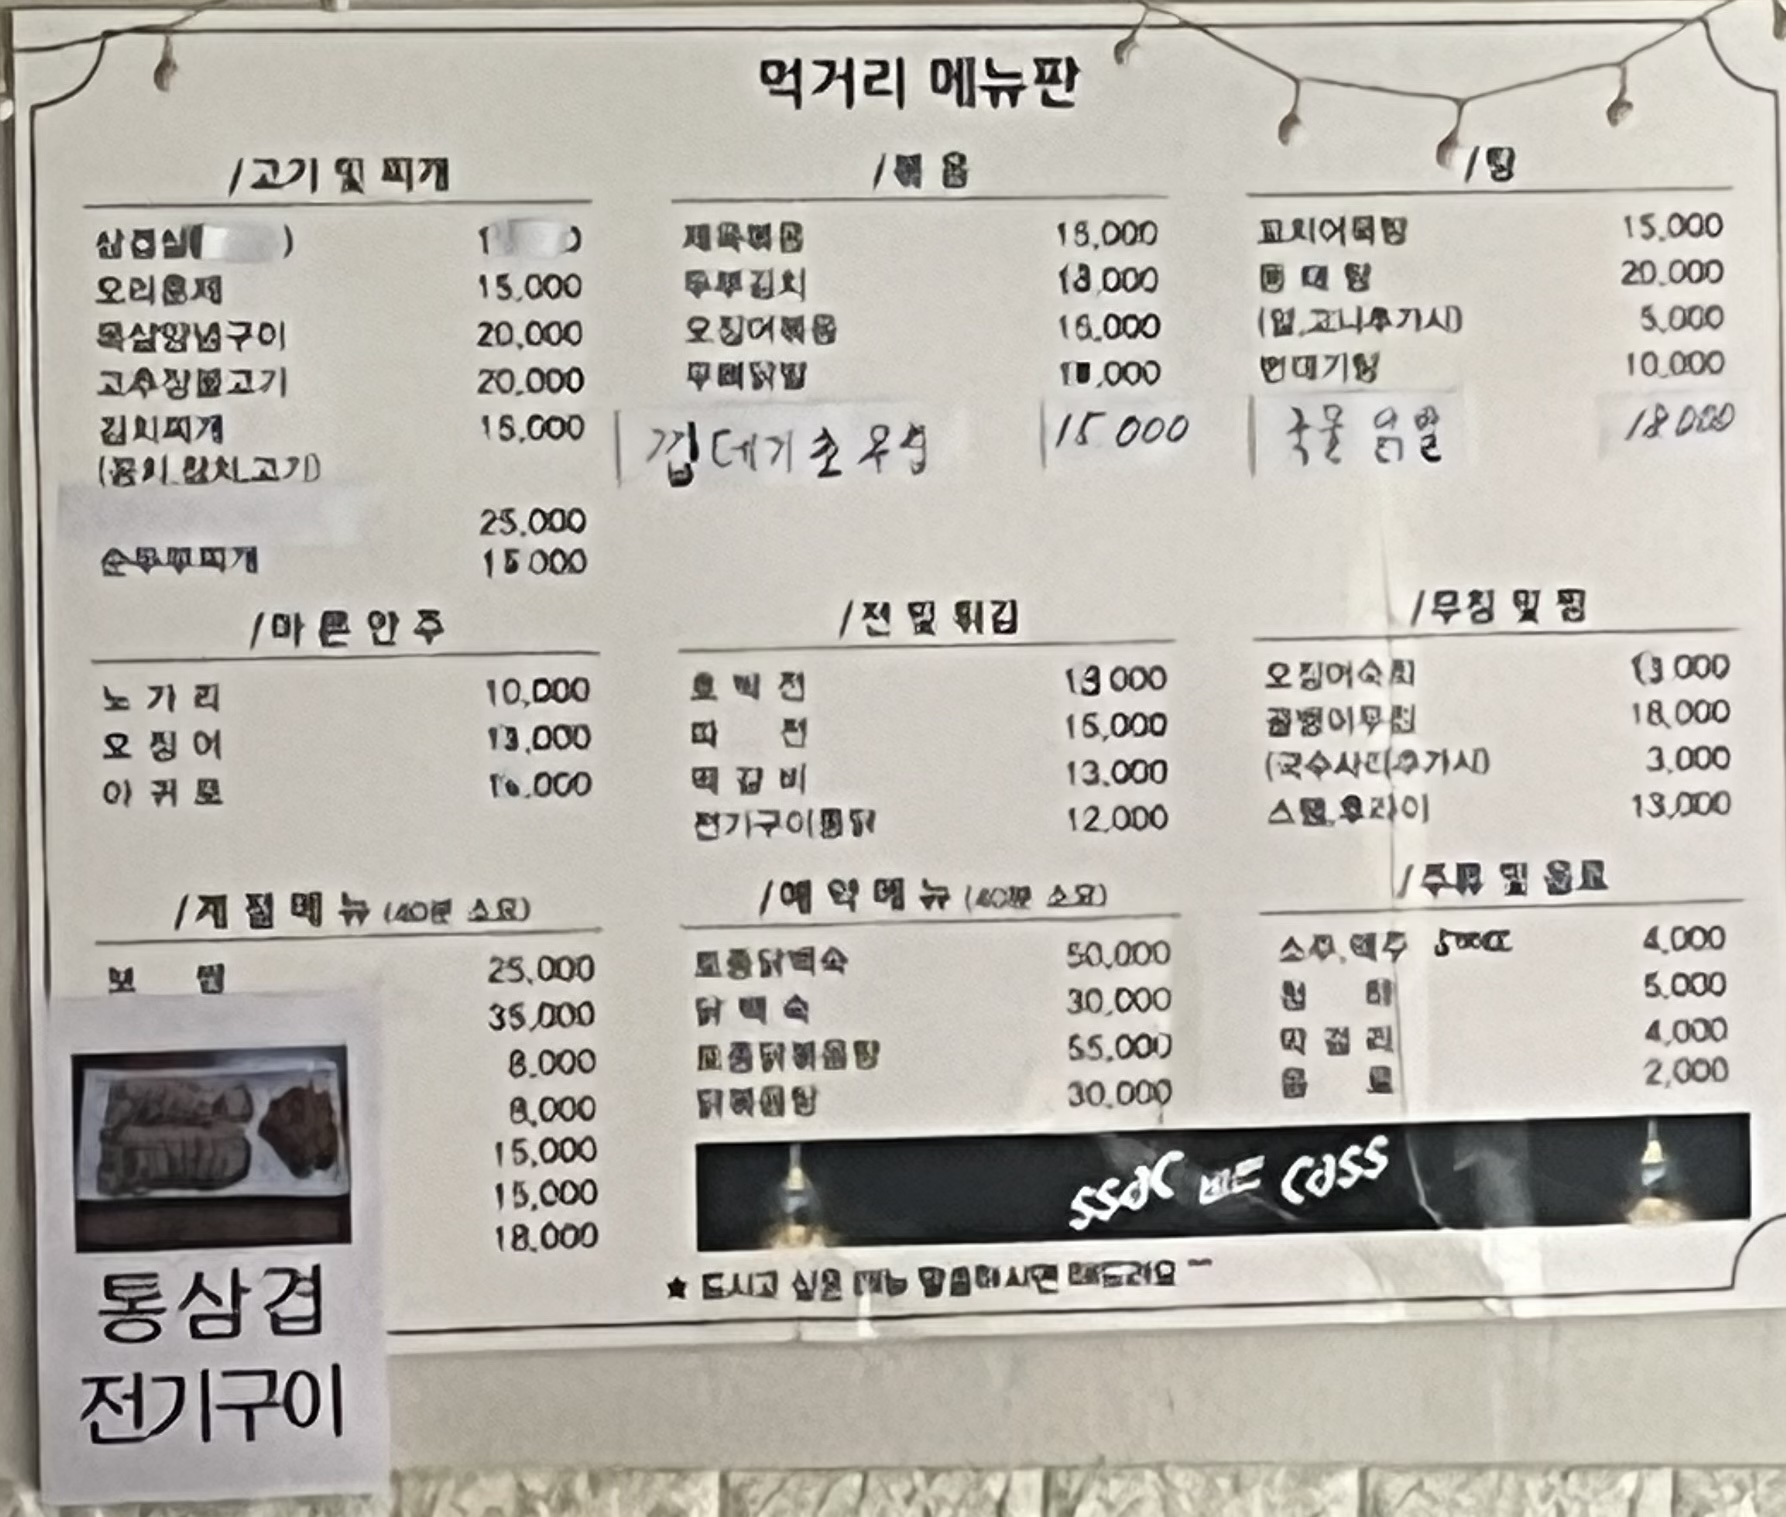 먹거리 메뉴판
/고기 및 찌개
삼겹살( )
오리훈제 15,000
목살양념구이 20,000
고추장불고기 20,000
김치찌개 15,000
(꽁치.참치.고기)
25,000
순두부찌개 15,000
/볶 음
제육볶음
두부김치
오징어볶음
무뼈닭발
껍데기초무침 15000
/탕
꼬치어묵탕 15,000
동 태 탕 20,000
(알.고니추가시) 5,000
번데기탕 10,000
국물 닭발 18000
/마 른 안 주
노 가 리 10,000
오 징 어 13,000
아 귀 포
/전 및 튀김
호 박 전 13,000
파 전 15,000
떡 갈 비 13,000
전기구이통닭 12,000
/무침 및 찜
오징어숙회 13,000
골뱅이무침 18,000
(국수사리추가시) 3,000
스팸,후라이 13,000
/계 절 메 뉴 (40분 소요)
보 쌈 25,000
35,000
8,000
8,000
15,000
15,000
18,000
/예 약 메 뉴 (40분 소요)
토종닭백숙 50,000
닭 백 숙 30,000
토종닭볶음탕 55,000
닭볶음탕 30,000
/주류 및 음료
소주,맥주 500cc 4,000
5,000
막 걸 리 4,000
음 료 2,000
cass
★ 드시고 싶은 메뉴 말씀하시면 해드려요 ~
통삼겹
전기구이